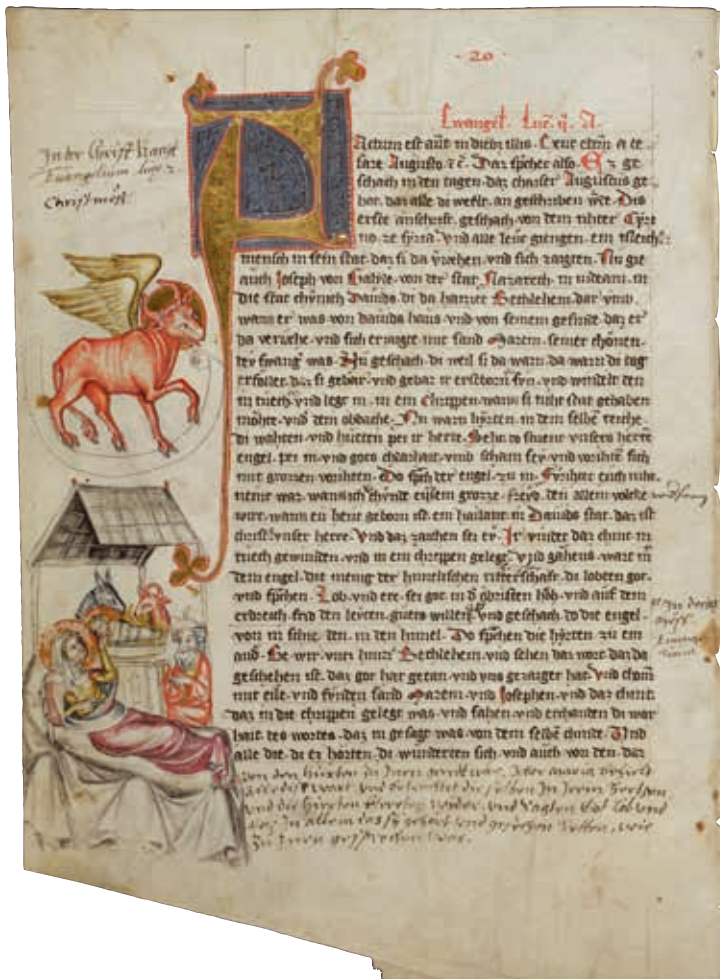 · 20 ·
Ewangel. Luc. ij. A.
In der Christ
Ewangelium
Factum est aut in diebus illis. Exiit edictum a ce
sare Augusto ⁊ c. Daz spchet also. Ez ge
schach in den tagen. daz chaiser Augustus ge
bot. daz alle die werlt. an geschriben wrde. Dis
erste anschrift. geschach von dem rihter Cyri
no. ze syria. vnd alle leute giengen. ein isleich
mensch in sein stat. daz si da
auch Joseph von Galylee. von der stat Nazareth. in iudeam. in
die stat chunich Dauids. di da haizzet Bethlehem. dar vmb.
wann er was von dauids haus. vnd von seinem gesinde. daz er
da veriehe. vnd sich erzaigte. mit sand Marien. seiner chonen.
dev swanger was. Nu geschach. di weil si da warn. da warn di tag
erfollet. daz si gebar. vnd gebar ir erstborn svn. vnd windelt den
in tuech. vnd legt in. in ein Chrippen. wann si niht stat gehaben
mohte. vnd dem obdache. Nu warn hyrten. in dem selbē
di wahten. vnd hueten per ir herte. Sehet do stuent vnsers herrē
engel. per in. vnd gotes chlarhait. vmb schain sey. vnd vorihtē sich
mit grozzen vorihten. Do spch der engel. zu in. Fyrihtet euch niht.
nemt war. wann ich chvnde ewsem grozze. frevd. den allem volche
wirt. wann eu heut geborn ist. ein hailant. in Dauids stat. daz ist
christ vnser herre. Vnd daz zaichen sei er. Ir vindet daz chint. in
tuech gewunden. vnd in ein chrippen gelegt. vnd gahens. wart mit
dem engel. die menig der himelischen ritterschaft. di lobten got.
vnd spchen. Lob vnd ere. sei got in d obristen hoh. vnd auf dem
erdreich. frid den levten. guets willen. vnd geschach. do die engel.
von in schie. den. in den himel. Do spchen die hyrten. zu ein
and. Ge wir. vntz hintz Bethlehem. vnd sehen daz wort. daz da
geschehen ist. daz got hat getan. vnd vns gezaiget hat. Vnd chom
mit eile. vnd fvnden sand Marein. vnd Josephen. vnd daz chint.
daz in die chrippen gelegt was. vnd sahen. vnd erchanden di war
hait des wortes. daz in gesagt was. von dem selbē chinde. Vnd
alle die. di ez horten. di wunderten sich. vnd auch von den. daz
von den hirten zu Inen geredt war. Aber maria behielt
alle dise wort. vnd betrachtet die selben In Irem hertzen
vnd die hirten
In allem das sy gehort vnd gesehen hetten, wie
zu Inen gesprochen war.